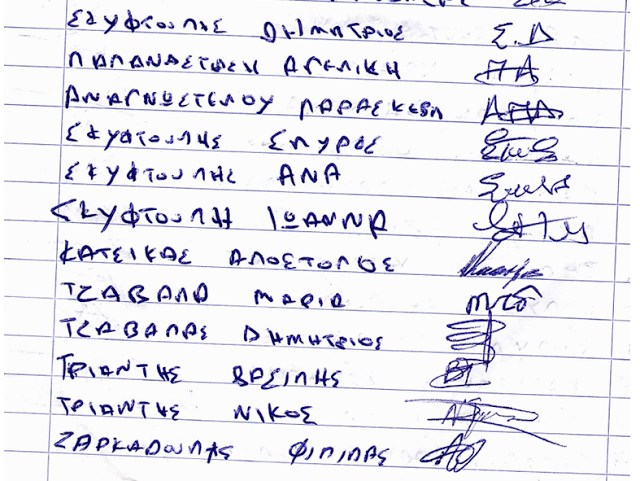 ΣΚΥΦΤΟΥΛΗΣ ΔΗΜΗΤΡΙΟΣ Σ.Δ
ΠΑΠΑΝΑΣΤΑΣΗ ΑΓΕΛΙΚΗ ΠΑ
ΑΝΑΓΝΩΣΤΕΛΟΥ ΠΑΡΑΣΚΕΒΗ
ΣΚΥΦΤΟΥΛΗΣ ΣΠΥΡΟΣ
ΣΚΥΦΤΟΥΛΗΣ ΑΝΑ
ΣΚΥΦΤΟΥΛΗ ΙΩΑΝΝΑ
ΚΑΤΣΙΚΑΣ ΑΠΟΣΤΟΛΟΣ
ΤΖΑΒΑΛΑ ΜΑΡΙΑ
ΤΖΑΒΑΛΑΣ ΔΗΜΗΤΡΙΟΣ
ΤΡΙΑΝΤΗΣ ΒΑΣΙΛΗΣ
ΤΡΙΑΝΤΗΣ ΝΙΚΟΣ
ΖΑΡΚΑΔΟΥΛΗΣ ΦΙΛΙΠΑΣ